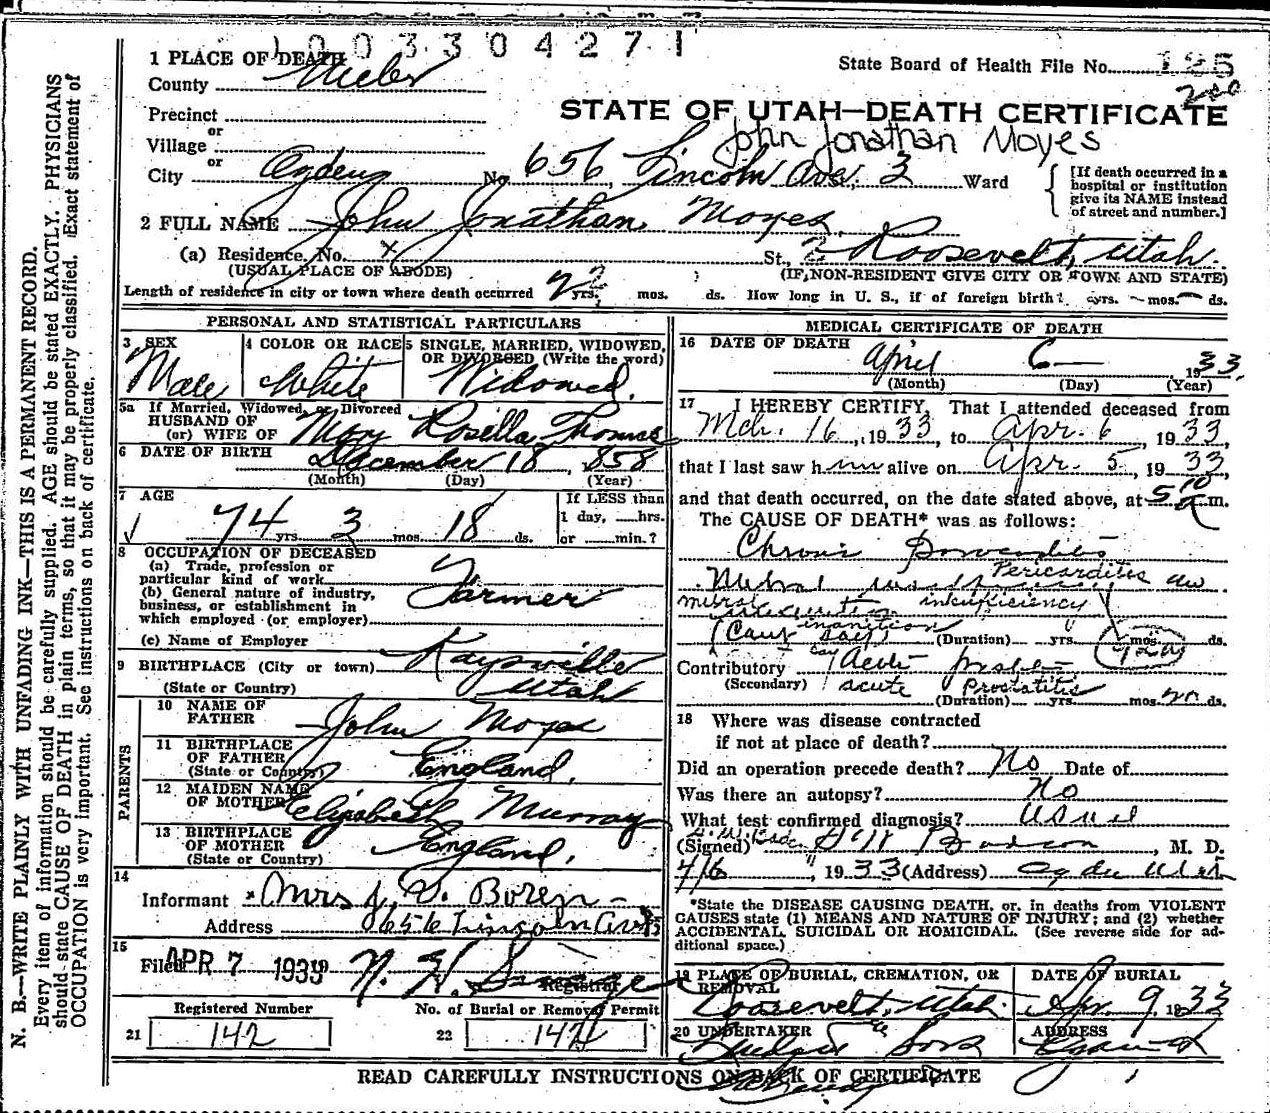 1003304271
1 PLACE OF DEATH
County Weber
State Board of Health File No. 125
200
Precinct
or
Village
or
STATE OF UTAH—DEATH CERTIFICATE
John Jonathan Moyes
City Ogden No. 656 Lincoln Ave. 3 Ward
[If death occurred in a hospital or institution give its NAME instead of street and number.]
2 FULL NAME John Jonathan Moyes
(a) Residence. No. x St., 2 Roosevelt, Utah.
(USUAL PLACE OF ABODE) (IF NON-RESIDENT GIVE CITY OR TOWN AND STATE)
Length of residence in city or town where death occurred yrs. mos. ds. How long in U. S., if of foreign birth? yrs. mos. ds.
PERSONAL AND STATISTICAL PARTICULARS
3 SEX Male
4 COLOR OR RACE White
5 SINGLE, MARRIED, WIDOWED, OR DIVORCED (Write the word) Widowed.
5a If Married, Widowed, or Divorced
HUSBAND OF
(or) WIFE OF Mary Rosella Thomas
6 DATE OF BIRTH December 18, 1858
(Month) (Day) (Year)
7 AGE 74 yrs. 3 mos. 18 ds.
If LESS than
1 day, ....hrs.
or ....min.?
8 OCCUPATION OF DECEASED
(a) Trade, profession or
particular kind of work Farmer
(b) General nature of industry,
business, or establishment in
which employed (or employer)
(c) Name of Employer
9 BIRTHPLACE (City or town) Kaysville
(State or Country) Utah
PARENTS
10 NAME OF
FATHER John Moyes
11 BIRTHPLACE
OF FATHER
(State or Country) England.
12 MAIDEN NAME
OF MOTHER Elizabeth Murray
13 BIRTHPLACE
OF MOTHER
(State or Country) England.
14
Informant Mrs J. V. Boren
Address 656 Lincoln Ave
15
Filed APR 7 1933 N. H. Savage
Registrar
Registered Number No. of Burial or Removal Permit
21 142 22 142
MEDICAL CERTIFICATE OF DEATH
16 DATE OF DEATH April 6 1933.
(Month) (Day) (Year)
17 I HEREBY CERTIFY, That I attended deceased from
Mch. 16, 1933, to Apr. 6 1933,
that I last saw him alive on Apr. 5, 1933
and that death occurred, on the date stated above, at 5 10 a m.
The CAUSE OF DEATH* was as follows:
Chronic
Pericarditis
Mitral
mitral insufficiency
inanition
(Duration) yrs. mos. ds.
Contributory Acute
(Secondary) acute Prostatitis
(Duration) yrs. mos. 20 ds.
18 Where was disease contracted
if not at place of death?
Did an operation precede death? No Date of
Was there an autopsy? No
What test confirmed diagnosis? Usual
(Signed) , M. D.
4/6, 1933 (Address) Ogden Utah
*State the DISEASE CAUSING DEATH, or, in deaths from VIOLENT
CAUSES state (1) MEANS AND NATURE OF INJURY; and (2) whether
ACCIDENTAL, SUICIDAL OR HOMICIDAL. (See reverse side for ad-
ditional space.)
19 PLACE OF BURIAL, CREMATION, OR
REMOVAL
Roosevelt, Utah.
DATE OF BURIAL
Apr. 9, 1933
20 UNDERTAKER Sons
ADDRESS
Ogden
READ CAREFULLY INSTRUCTIONS ON BACK OF CERTIFICATE
N. B.—WRITE PLAINLY WITH UNFADING INK—THIS IS A PERMANENT RECORD.
Every item of information should be carefully supplied. AGE should be stated EXACTLY. PHYSICIANS
should state CAUSE OF DEATH in plain terms, so that it may be properly classified. Exact statement of
OCCUPATION is very important. See instructions on back of certificate.